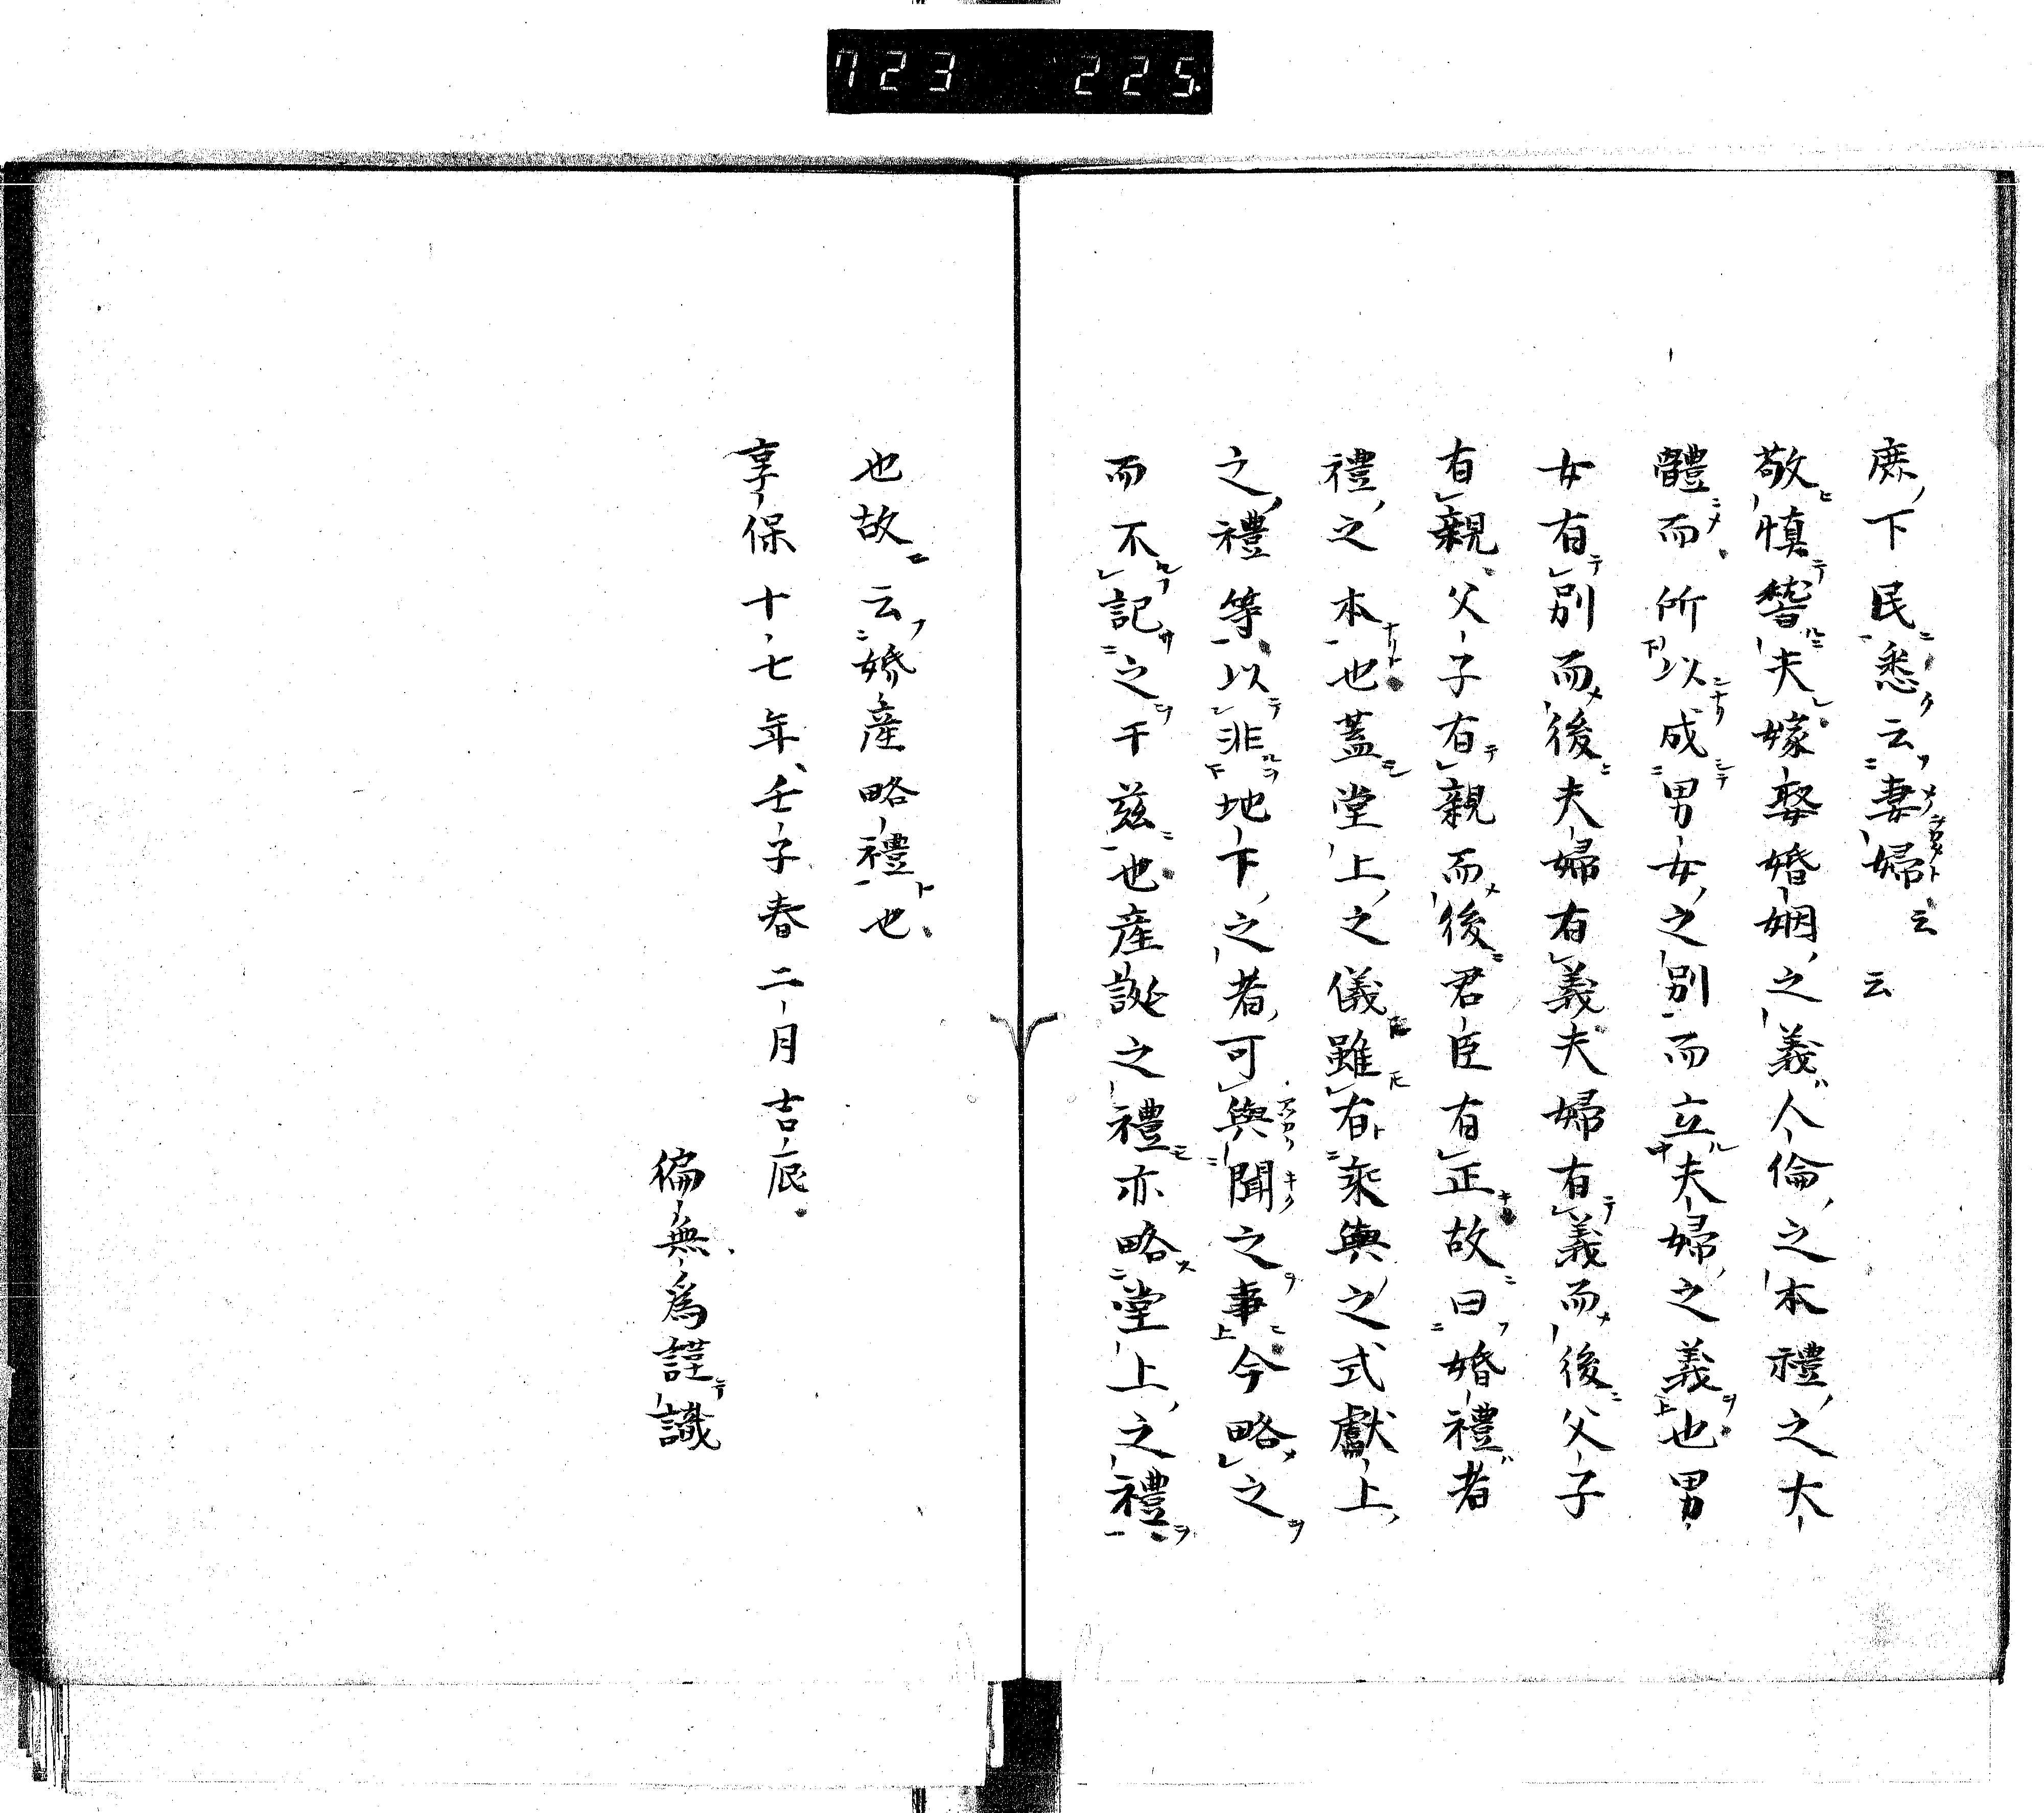 723 225.
庶下民悉云妻婦云云
敬慎嫁娶婚姻之義人倫之本禮之大
體而所以成男女之別而立夫婦之義也男
女有別而後夫婦有義夫婦有義而後父子
有親父子有親而後君臣有正故曰婚禮者
禮之本也蓋堂上之儀雖有乘輿之式獻上
之禮等以非地下之者可與聞之事今略之
而不記之干茲也産誕之禮亦略堂上之禮
也故云婚産略禮也
享保十七年壬子春二月吉辰
徧無為謹識